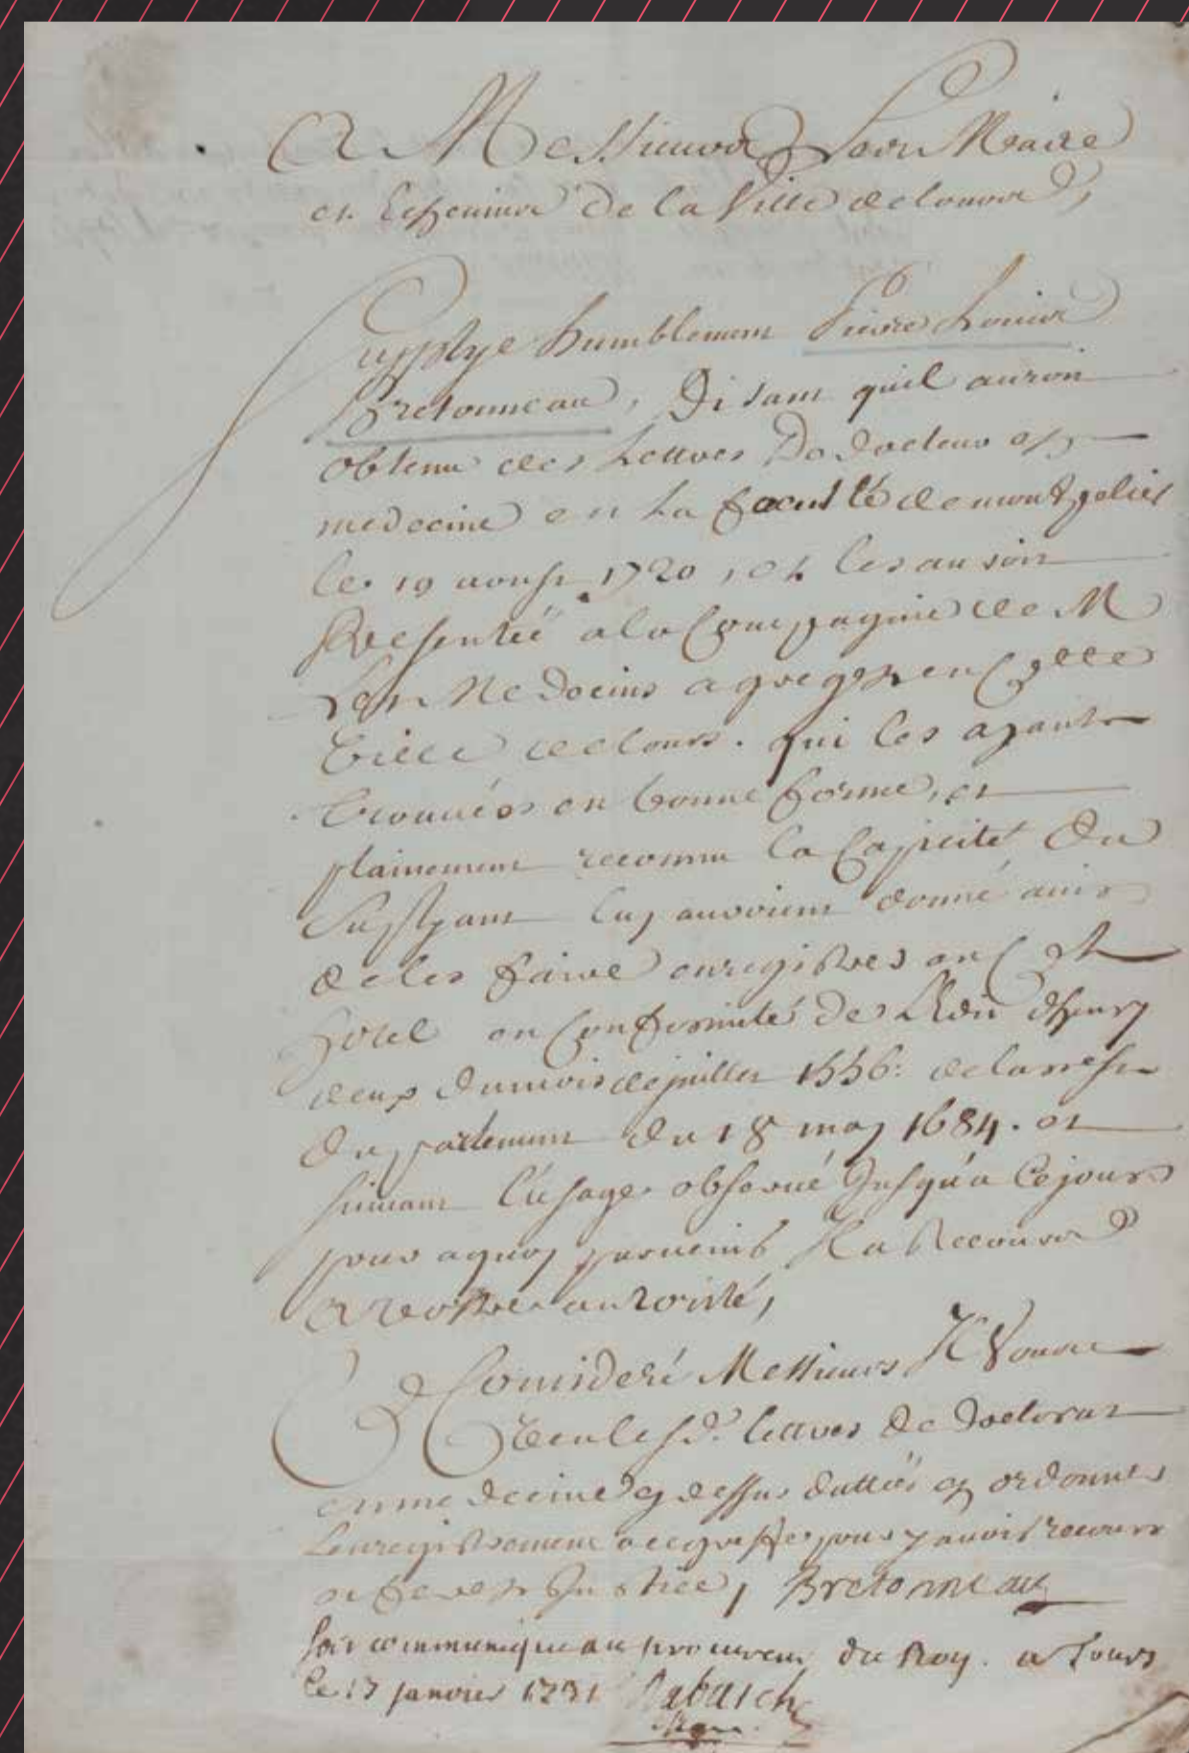 A Messieurs Les Maire
et Eschevins de la Ville de Tours,
Supplye humblement Pierre Louis
Bretonneau, Disant quil auroit
obtenu des Lettres De Docteur en
medecine en La faculté de montpelier
le 19 aoust 1720, et les auroit
Presenteé a la Compagnie de M
Les Medecins agregez en Cette
Ville de tours. qui les ayant
trouvées en bonne forme, et
plainement reconnu la Capacité Du
Supplyant luy auroient donné avis
de les faire enregistrer en Cet
hotel en Conformité de LEdit dhenry
deux du mois de juillet 1556: de larrest
du parlement du 18 may 1684. et
suivant l'usage observé Jusqu'a Ce jour
pour aquoy parvenir Il a Recours
A vostre autorité,
Ce Consideré Messieurs Il Vous
Veu les d. lettres de Doctorat
en medecine cy dessus dattées en ordonner
Lenregistrement au greffe pour y avoir recours
et ferez Justice, Bretonneau
soit communiqué au procureur du Roy. a Tours
le 13 janvier 1731